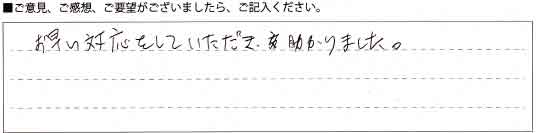 ■ご意見、ご感想、ご要望がございましたら、ご記入ください。
お早い対応をしていただき、助かりました。